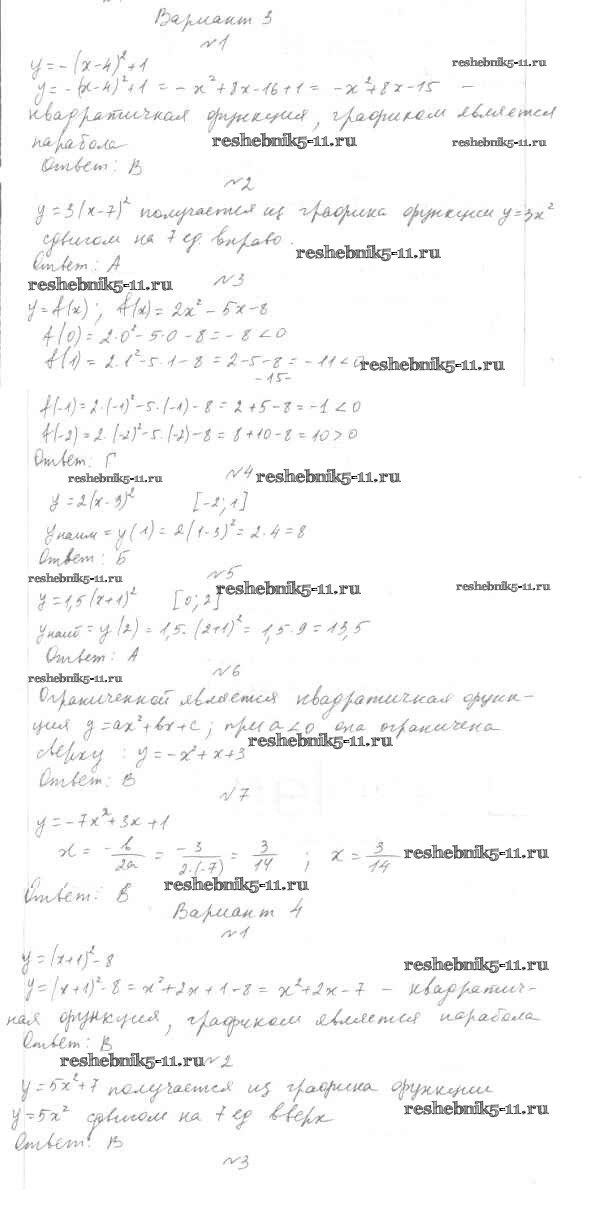 Вариант 3
№1
y=-(x-4)²+1
reshebnik5-11.ru
y=-(x-4)²+1 = -x²+8x-16+1 = -x²+8x-15 -
квадратичная функция, графиком является
парабола
reshebnik5-11.ru
reshebnik5-11.ru
Ответ: В
№2
y=3(x-7)² получается из графика функции y=3x²
сдвигом на 7 ед. вправо.
reshebnik5-11.ru
Ответ: А
reshebnik5-11.ru
№3
y=f(x); f(x)=2x²-5x-8
f(0)=2·0²-5·0-8=-8<0
f(1)=2·1²-5·1-8=2-5-8=-11<0
reshebnik5-11.ru
-15-
f(-1)=2·(-1)²-5·(-1)-8=2+5-8=-1<0
f(-2)=2·(-2)²-5·(-2)-8=8+10-8=10>0
Ответ: Г
reshebnik5-11.ru
№4
reshebnik5-11.ru
y=2(x-3)² [-2;1]
yнаим=y(1)=2(1-3)²=2·4=8
Ответ: Б
reshebnik5-11.ru
№5
reshebnik5-11.ru
reshebnik5-11.ru
y=1,5(x+1)² [0;2]
yнаиб=y(2)=1,5·(2+1)²=1,5·9=13,5
Ответ: А
reshebnik5-11.ru
№6
Ограниченной является квадратичная функ-
ция y=ax²+bx+c; при a<0 она ограничена
сверху: y=-x²+x+3
reshebnik5-11.ru
Ответ: В
№7
y=-7x²+3x+1
x = -b/2a = -3/2·(-7) = 3/14 ; x=3/14
reshebnik5-11.ru
reshebnik5-11.ru
Ответ: В
Вариант 4
№1
y=(x+1)²-8
reshebnik5-11.ru
y=(x+1)²-8=x²+2x+1-8=x²+2x-7 - квадратич-
ная функция, графиком является парабола
Ответ: В
reshebnik5-11.ru
№2
y=5x²+7 получается из графика функции
y=5x² сдвигом на 7 ед вверх
reshebnik5-11.ru
Ответ: В
№3